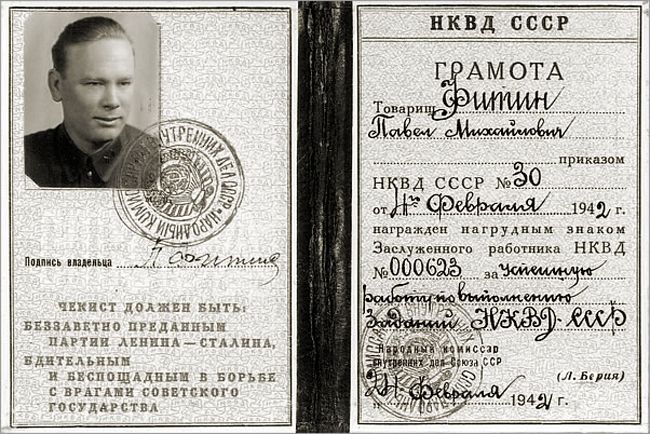 НАРОДНЫЙ КОМИССАРИАТ ВНУТРЕННИХ ДЕЛ СССР
Подпись владельца П Фитин
ЧЕКИСТ ДОЛЖЕН БЫТЬ:
БЕЗЗАВЕТНО ПРЕДАННЫМ
ПАРТИИ ЛЕНИНА—СТАЛИНА,
БДИТЕЛЬНЫМ
И БЕСПОЩАДНЫМ В БОРЬБЕ
С ВРАГАМИ СОВЕТСКОГО
ГОСУДАРСТВА
НКВД СССР
ГРАМОТА
Товарищ Фитин
Павел Михайлович
приказом
НКВД СССР № 30
от 4го Февраля 1942 г.
награжден нагрудным знаком
Заслуженного работника НКВД
№ 000623 за успешную
работу по выполнению
заданий НКВД-СССР
Народный комиссар
внутренних дел Союза ССР
(Л. Берия)
Февраля 1942 г.